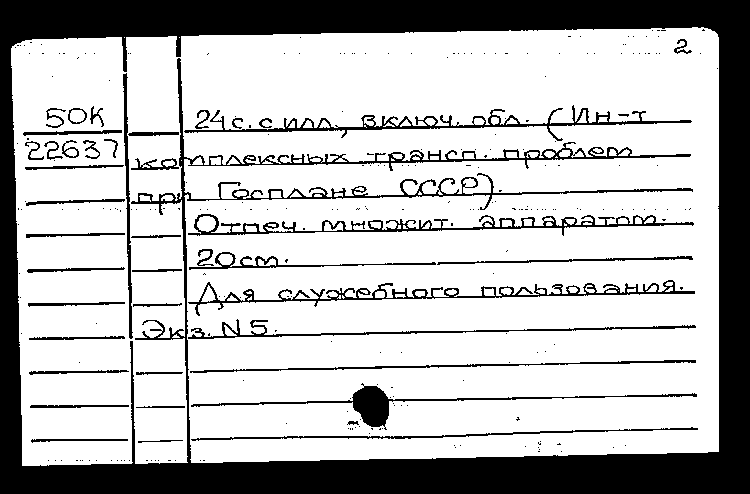 2
50К 24с. с илл., включ. обл. (Ин-т
22637 комплексных трансп. проблем
при Госплане СССР).
Отпеч. множит. аппаратом.
20см.
Для служебного пользования.
Экз. N5.